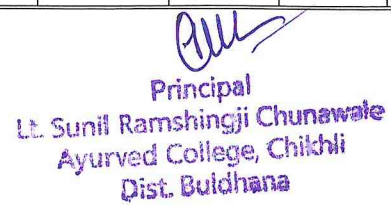 Principal
Lt. Sunil Ramshingji Chunawale
Ayurved College, Chikhli
Dist. Buldhana